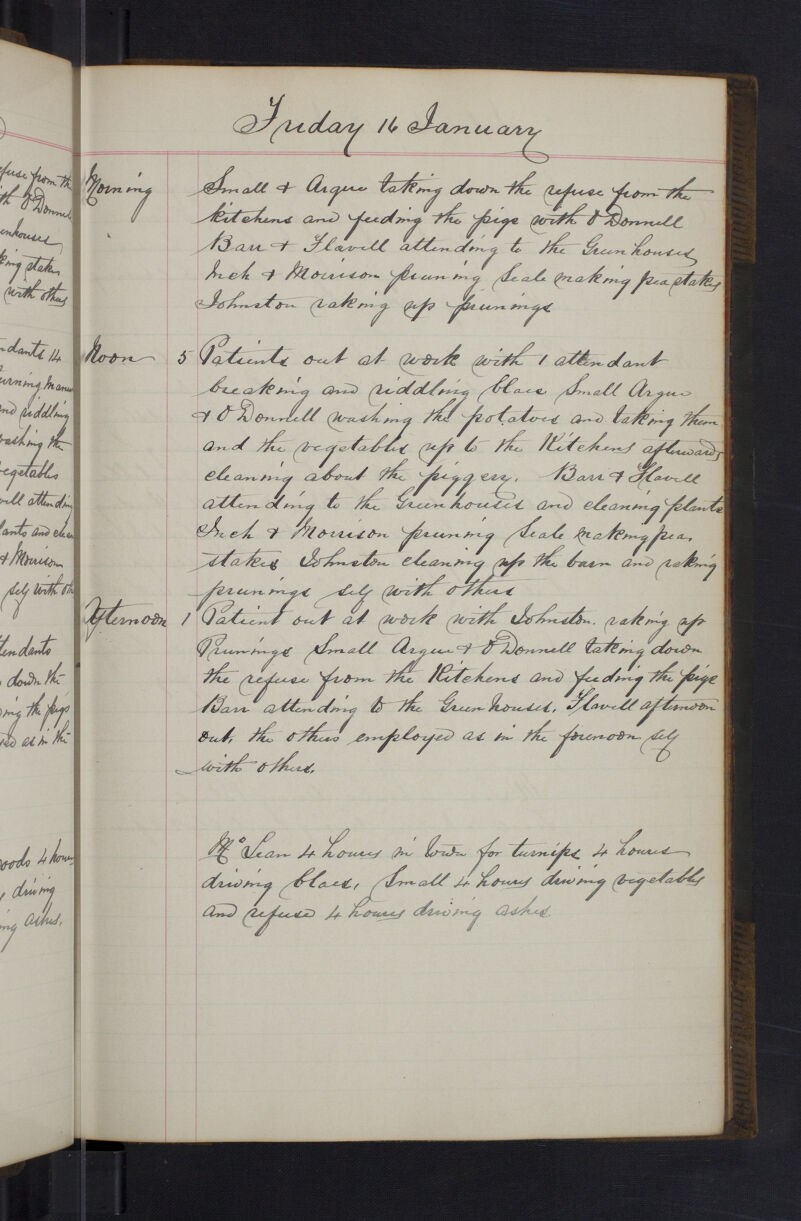 Friday 16 January
Morning Small & Argue taking down the refuse from the
kitchens and feeding the pigs with O'Donnell
Barr & Flavell attending to the Greenhouses
Inch & Morrison pruning Seale making pea stakes
Johnston raking up prunings
Noon 5 Patients out at work with 1 attendant
breaking and riddling blaes Small Argue
& O'Donnell washing the potatoes and taking them
and the vegetables up to the Kitchens afterwards
cleaning about the piggery. Barr & Flavell
attending to the Greenhouses and cleaning plants
Inch & Morrison pruning Seale making pea
stakes Johnston cleaning up the barn and raking
prunings self with others
Afternoon 1 Patient out at work with Johnston. raking up
Prunings Small Argue & O'Donnell taking down
the refuse from the Kitchens and feeding the pigs
Barr attending to the Greenhouses. Flavell afternoon
out. the others employed as in the forenoon self
with others.
Mc Lean 4 hours in town for turnips 4 hours
driving blaes. Small 4 hours driving vegetables
and refuse 4 hours driving ashes.
efuse from the
th O'Donnell
enhouses
king stakes
with others
ndants 14
nd riddling
washing the
vegetables
vell attending
lants and clean
& Morrison
self with oth
tendants
down the
ing the pigs
ed as in the
oods 4 hours
driving
ng ashes.